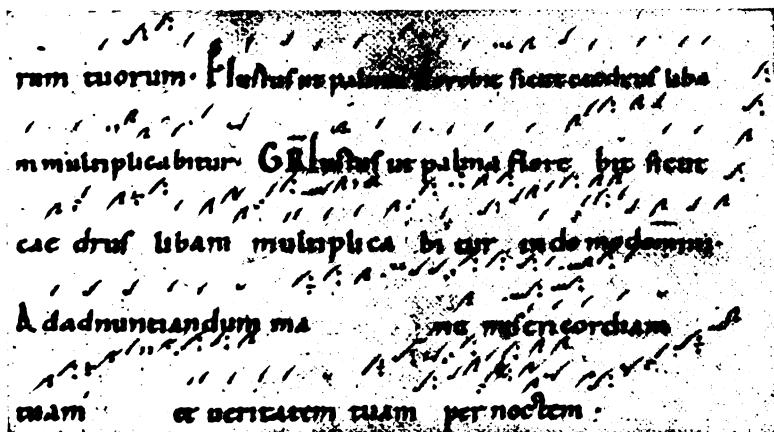 rum tuorum. Ps Iustus ut palma florebit sicut caedrus liba
ni multiplicabitur GR Iustus ut palma flore bit sicut
cae drus libam multiplica bi tur in domo domini.
Ad adnuntiandum ma ne misericordiam
tuam et veritatem tuam per noctem.